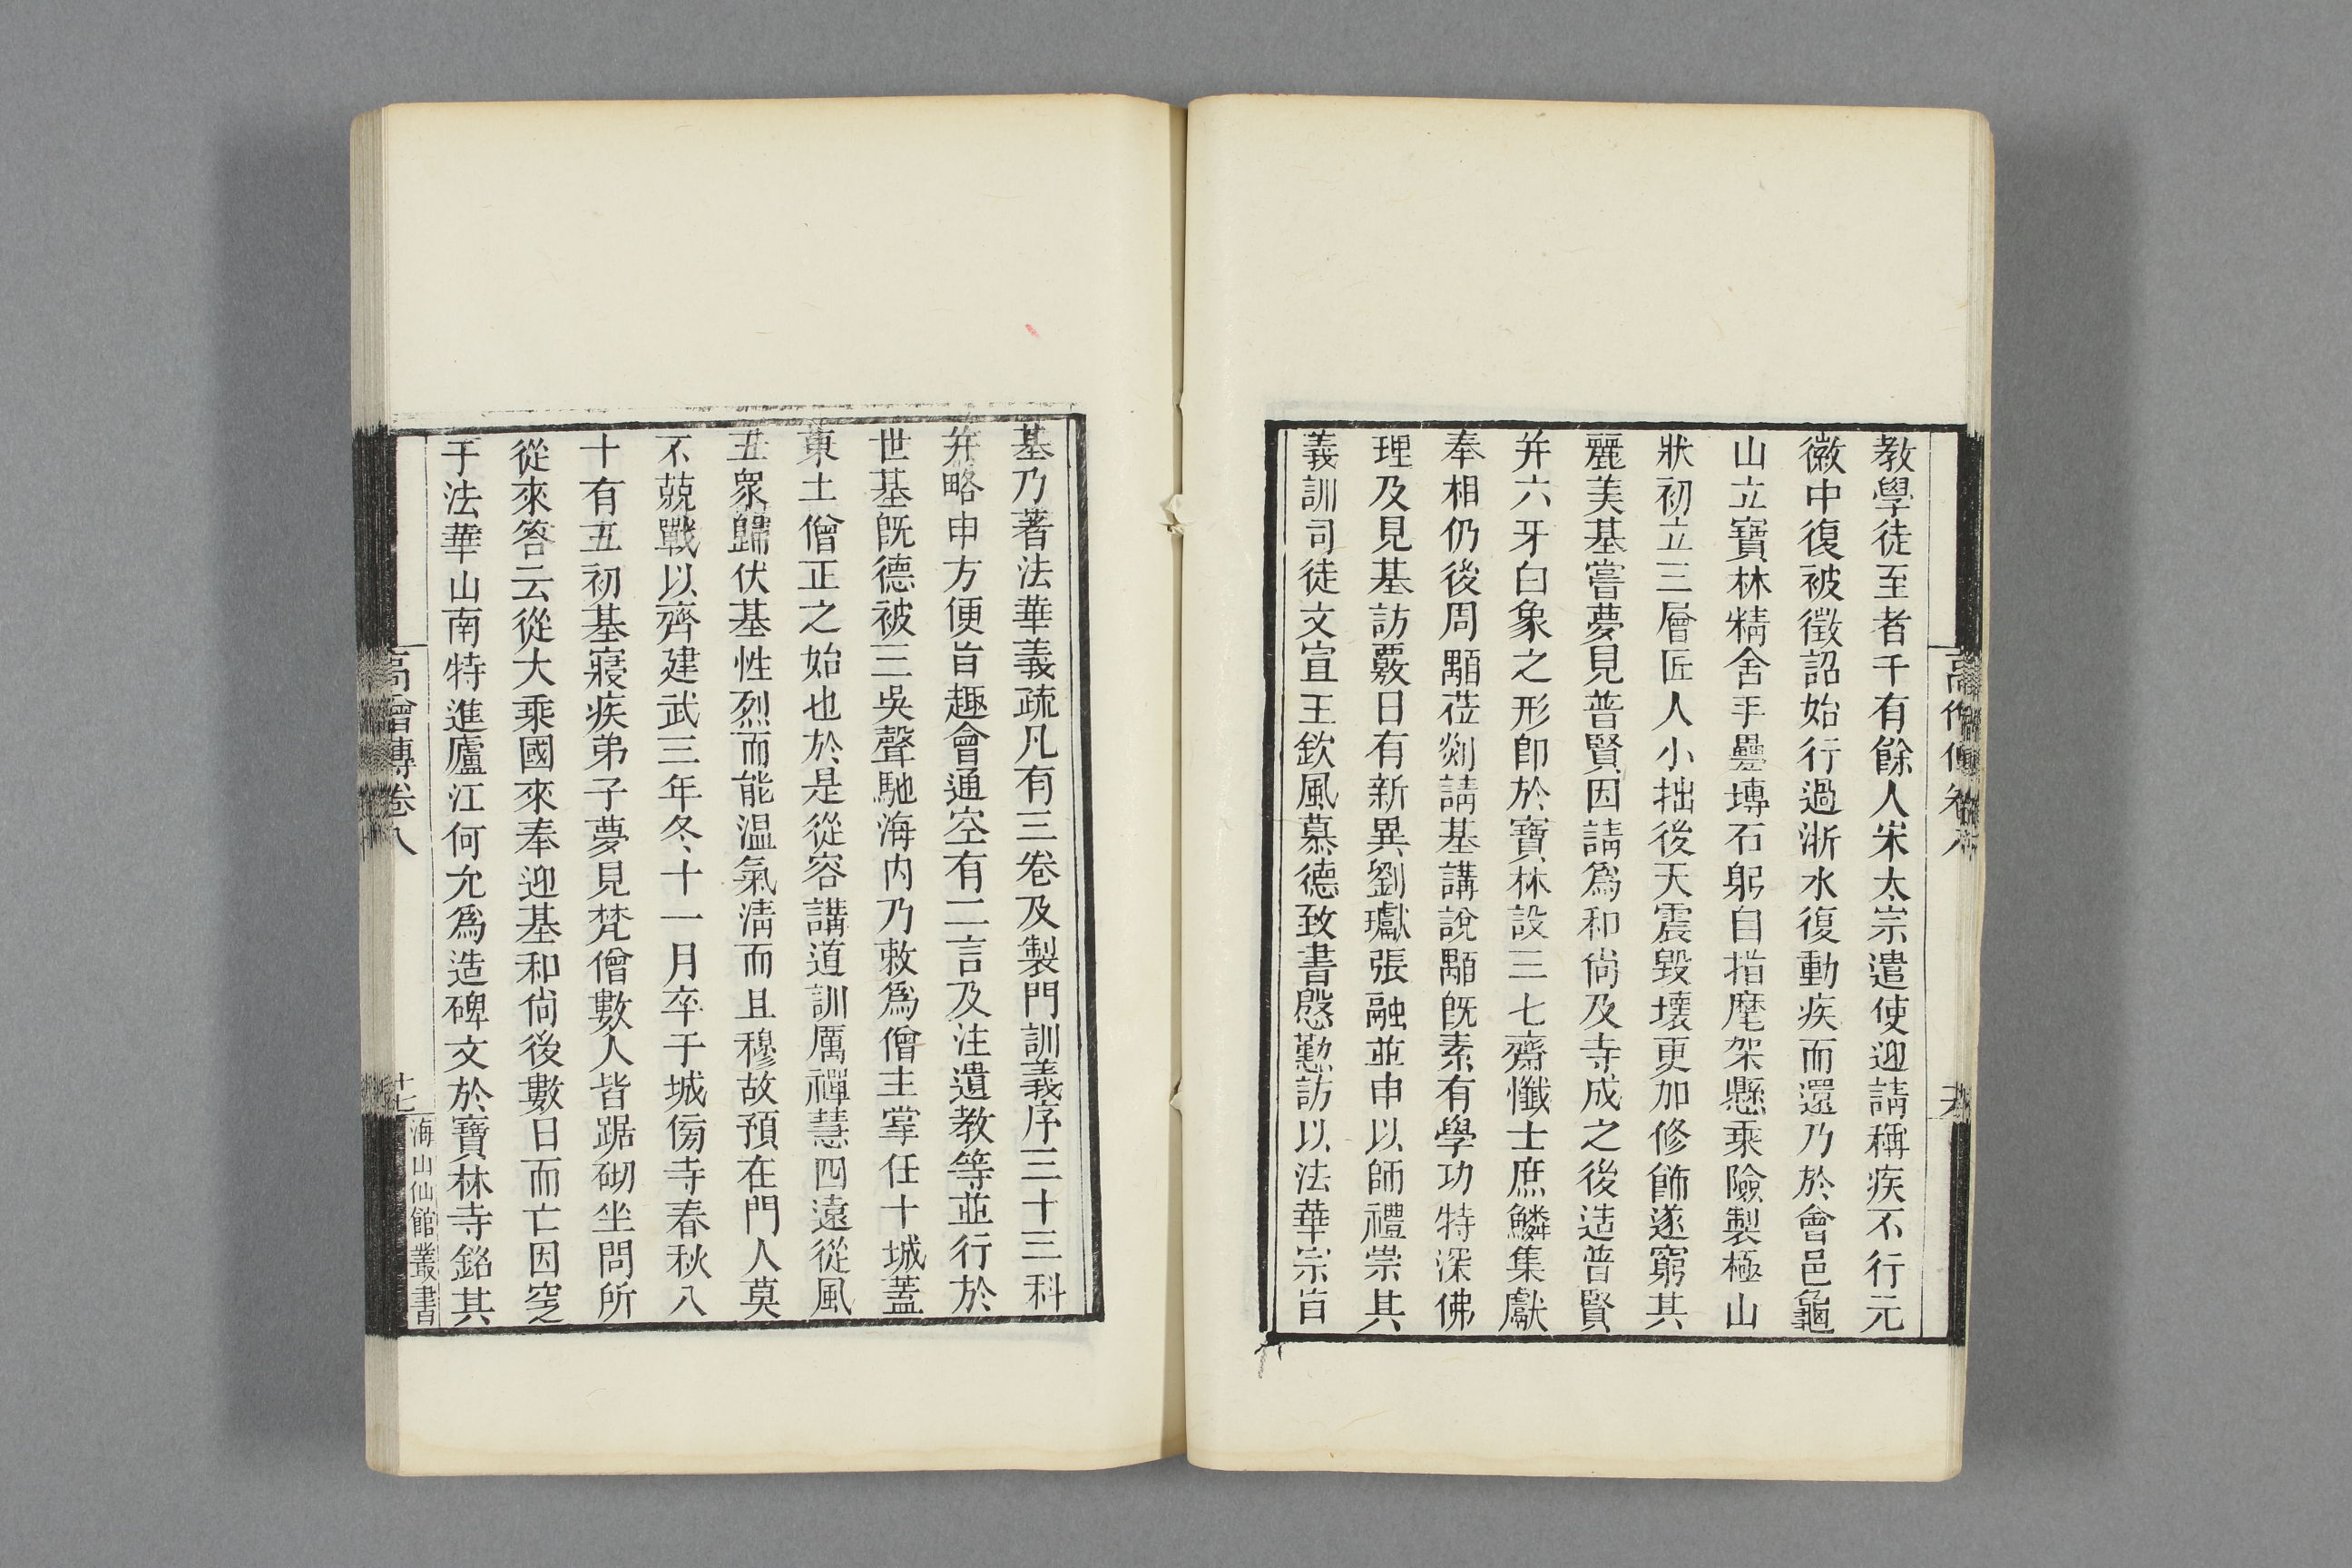 教學徒至者千有餘人宋太宗遣使迎請稱疾不行元
徽中復被徵詔始行過浙水復動疾而還乃於會邑龜
山立寶林精舍手疊塼石躬自指麾架懸乘險製極山
狀初立三層匠人小拙後天震毀壞更加修飾遂窮其
麗美基嘗夢見普賢因請爲和尙及寺成之後造普賢
并六牙白象之形卽於寶林設三七齋懺士庶鱗集獻
奉相仍後周顒莅剡請基講說顒旣素有學功特深佛
理及見基訪覈日有新異劉瓛張融並申以師禮崇其
義訓司徒文宣王欽風慕德致書慇懃訪以法華宗旨
高僧傳卷八
基乃著法華義疏凡有三卷及製門訓義序三十三科
并略申方便旨趣會通空有二言及注遺教等並行於
世基旣德被三吳聲馳海內乃敕爲僧主掌任十城蓋
東土僧正之始也於是從容講道訓厲禪慧四遠從風
五衆歸伏基性烈而能溫氣淸而且穆故預在門人莫
不兢戰以齊建武三年冬十一月卒于城傍寺春秋八
十有五初基寢疾弟子夢見梵僧數人皆踞砌坐問所
從來答云從大乘國來奉迎基和尙後數日而亡因窆
于法華山南特進廬江何允爲造碑文於寶林寺銘其
高僧傳卷八
十七
海山仙館叢書